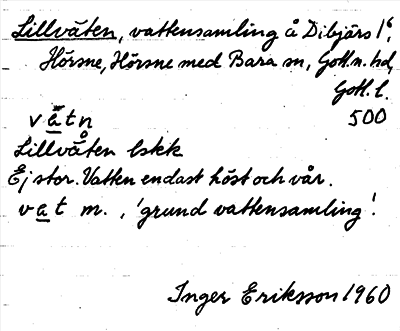 Lillväten, vattensamling å Dibjärs 1⁶,
Hörsne, Hörsne med Bara sn, Gotl.n. hd,
Gotl. l.
vätn 500
Lillvåten lskk
Ej stor. Vatten endast höst och vår.
vat m., 'grund vattensamling'.
Inger Eriksson 1960